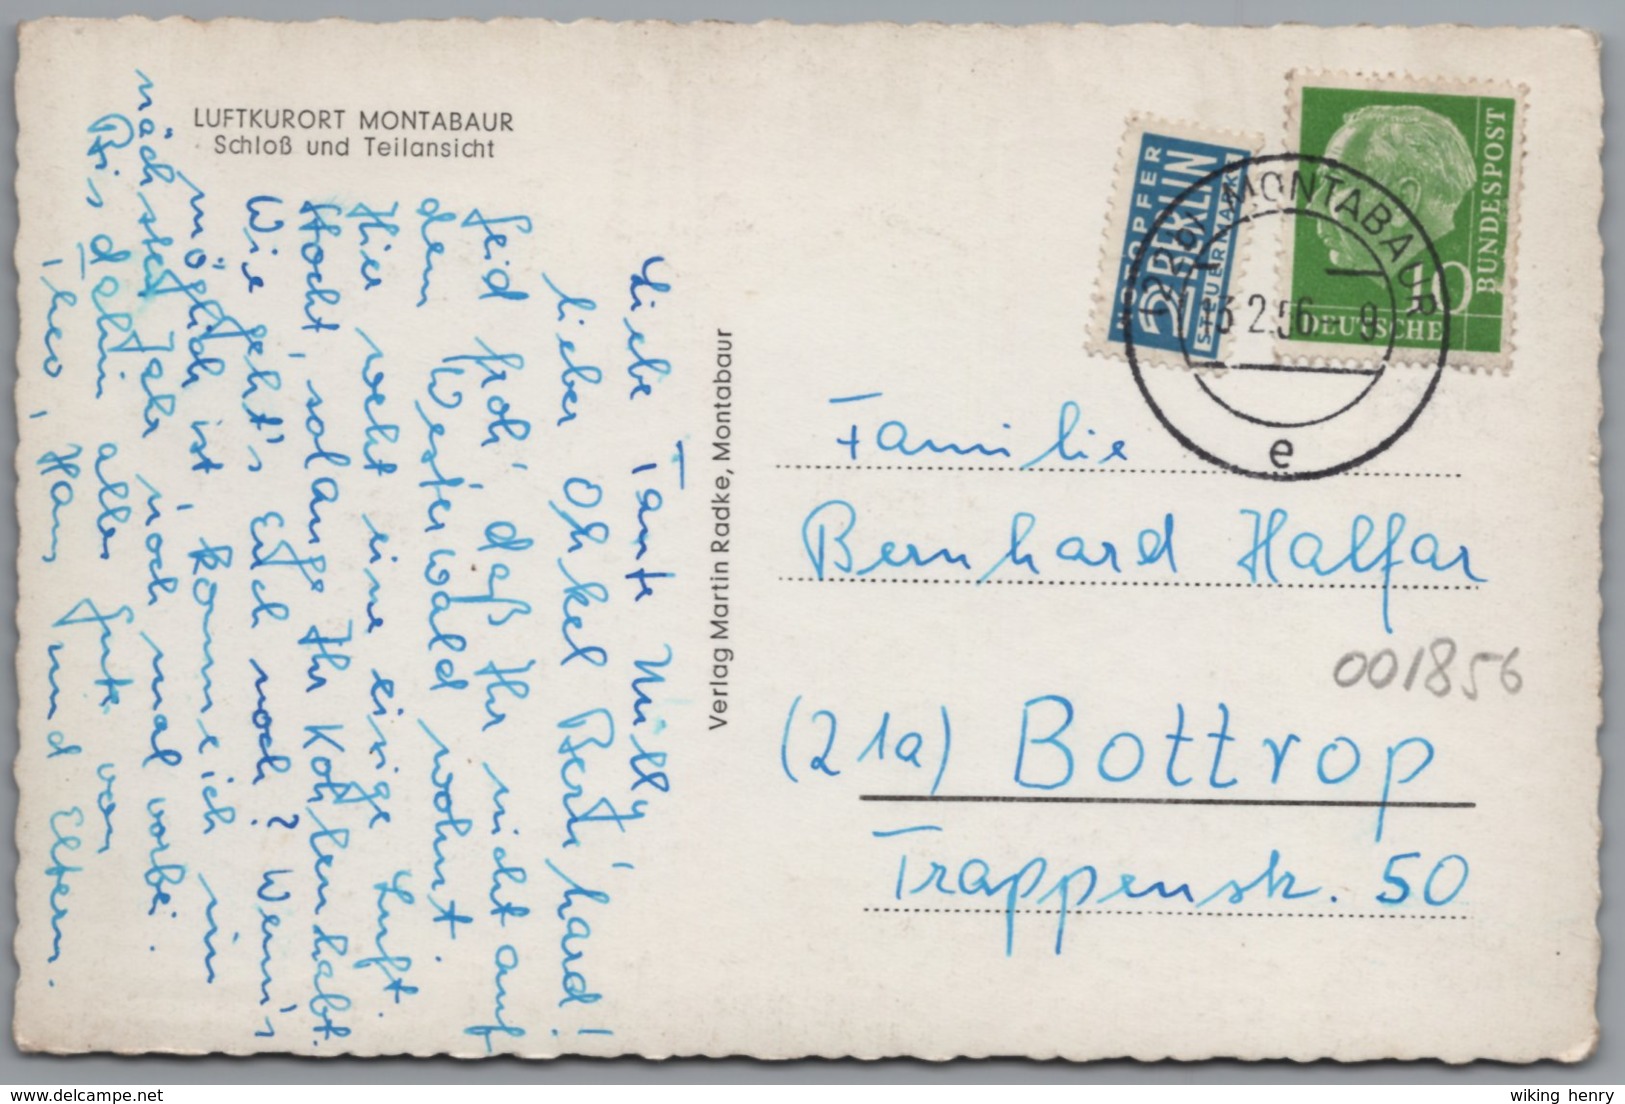 LUFTKURORT MONTABAUR
Schloß und Teilansicht
Liebe Tante Milly
lieber Ohkel Bernhard!
Seid froh, daß Ihr nicht auf
dem Westerwald wohnt.
Hier weht eine eisige Luft.
Hocht, solange Ihr Kohlen habt.
Wie geht's Euch noch? Wenn's
möglich ist, komme ich im
nächsten Jahr noch mal vorbei.
Bis dahin alles Gute von
Hans und Eltern.
Verlag Martin Radke, Montabaur
NOTOPFER
2 BERLIN
STEUERMARKE
DEUTSCHE
BUNDESPOST
10
(22b) MONTABAUR
13.2.56 - 9
e
Familie
Bernhard Halfar
001856
(21a) Bottrop
Trappenstr. 50
wiking henry